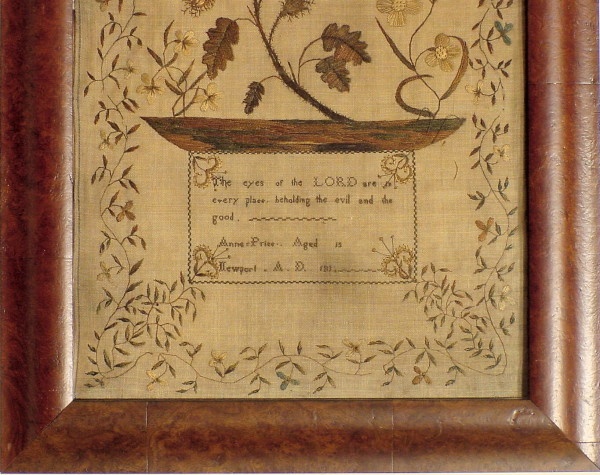 The eyes of the LORD are in
every place, beholding the evil and the
good.
Anne Price. Aged 13
Newport. A. D.